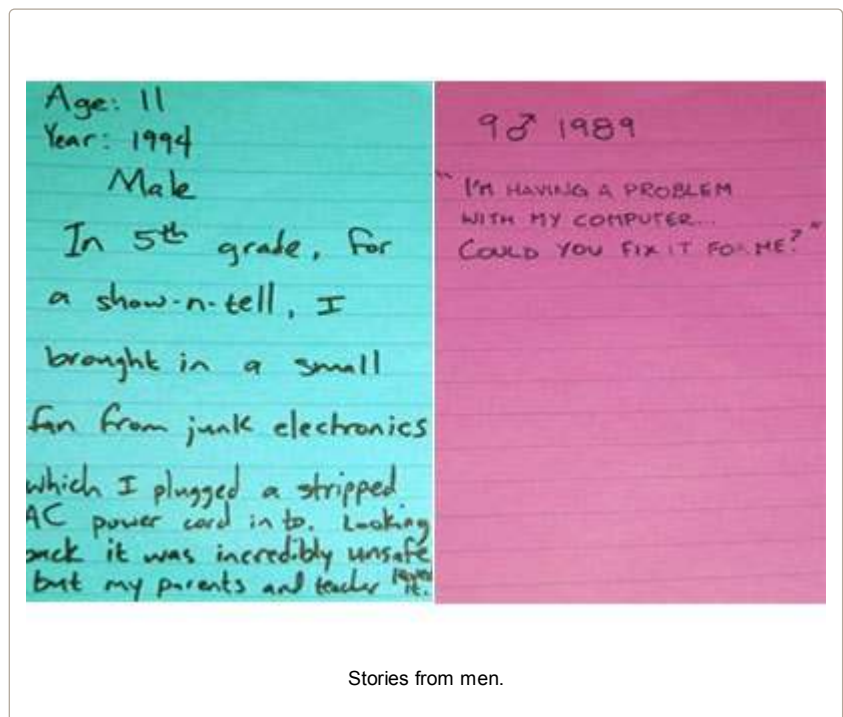 Age: 11
Year: 1994
Male
In 5th grade, for
a show-n-tell, I
brought in a small
fan from junk electronics
which I plugged a stripped
AC power cord in to. Looking
back it was incredibly unsafe
but my parents and teacher loved
it.
9♂ 1989
"I'M HAVING A PROBLEM
WITH MY COMPUTER...
COULD YOU FIX IT FOR ME?"
Stories from men.